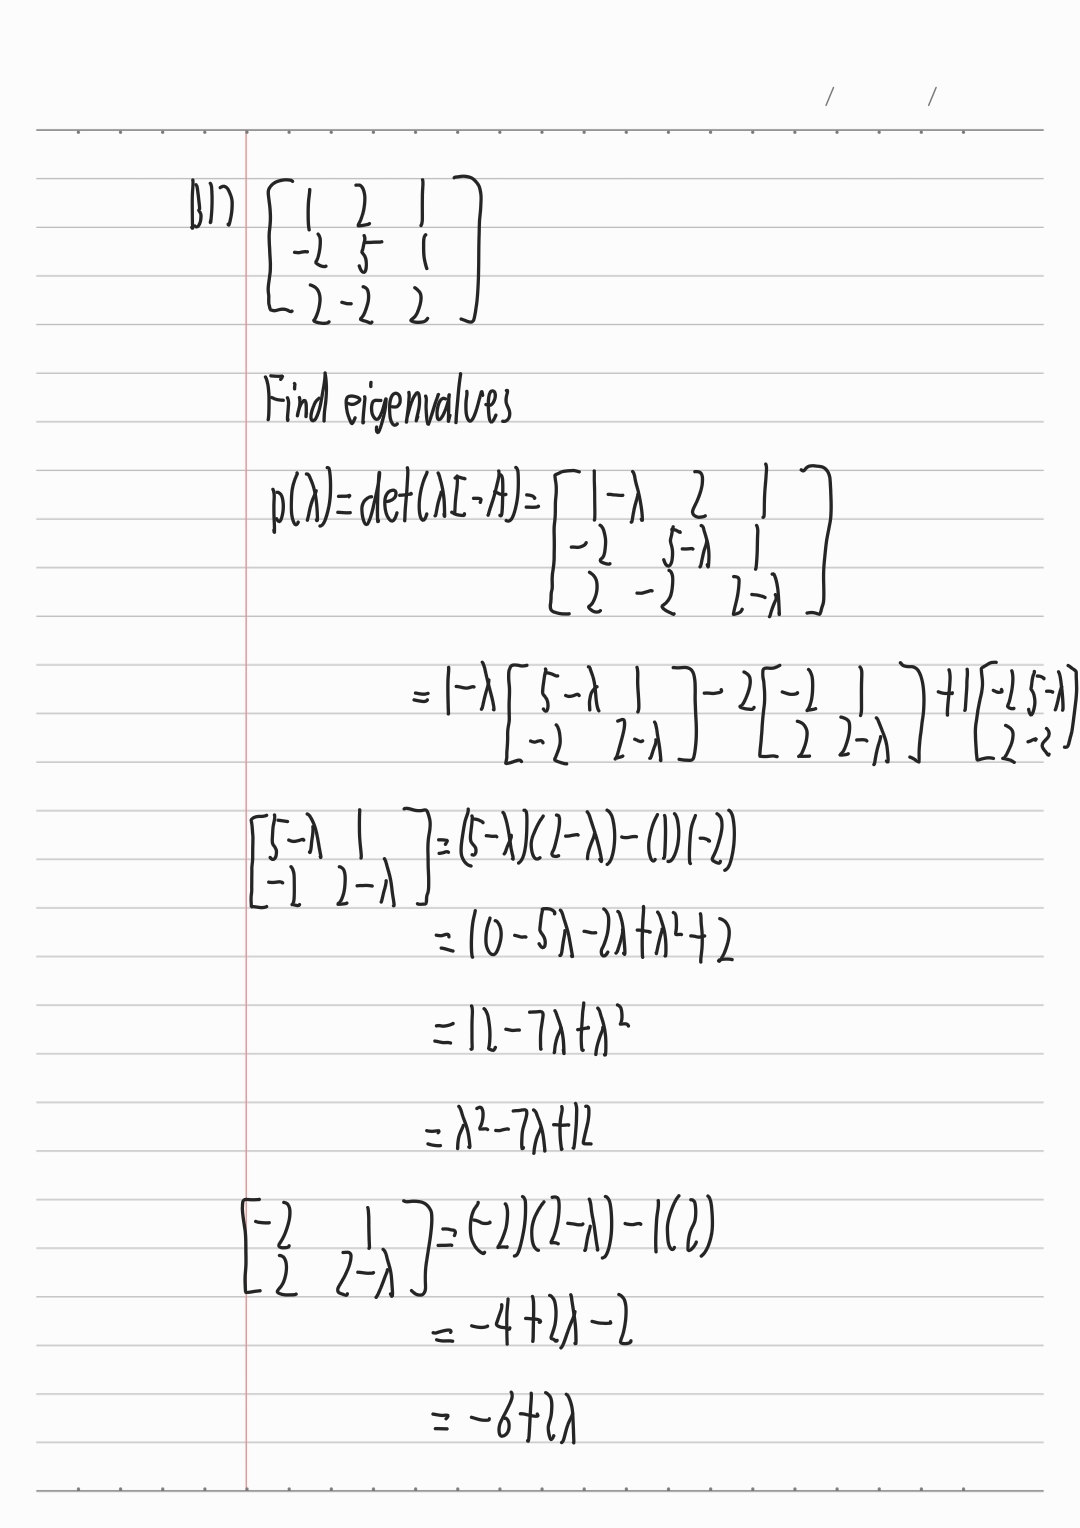 B1) [ 1 2 1
-2 5 1
2 -2 2 ]
Find eigenvalues
p(λ)=det(λI-A)= [ 1-λ 2 1
-2 5-λ 1
2 -2 2-λ ]
= 1-λ [ 5-λ 1 ] - 2 [ -2 1 ] +1 [ -2 5-λ ]
[ -2 2-λ ] [ 2 2-λ ] [ 2 -2 ]
[ 5-λ 1 ] = (5-λ)(2-λ)-(1)(-2)
[ -2 2-λ ]
= 10-5λ-2λ+λ²+2
= 12-7λ+λ²
= λ²-7λ+12
[ -2 1 ] = (-2)(2-λ)-1(2)
[ 2 2-λ ]
= -4+2λ-2
= -6+2λ